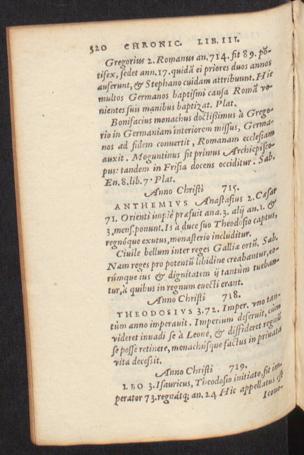 320 CHRONIC. LIB. III.
Gregorius 2. Romanus an. 714. fit 89. põ-
tifex, sedet ann. 17. quidã ei priores duos annos
auferunt, & Stephano cuidam attribuunt. Hic
multos Germanos baptismi causa Romã ve-
nientes suis manibus baptizat. Plat.
Bonifacius monachus doctissimus à Grego-
rio in Germaniam interiorem missus, Germa-
nos ad fidem conuertit, Romanam ecclesiam
auxit. Moguntinus fit primus Archiepisco-
pus: tandem in Frisia docens occiditur. Sab.
En. 8. lib. 7. Plat.
Anno Christi 715.
ANTHEMIVS Anastasius 2. Cæsar
71. Orienti impiè præfuit ana. 3. alij an. 1. &
3. mens. ponunt. Is à duce suo Theodosio captus,
regnóque exutus, monasterio includitur.
Ciuile bellum inter reges Galliæ ortũ. Sab.
Nam reges pro potentũ libidine creabantur, eo-
rúmque ius & dignitatem ij tantùm tueban-
tur, à quibus in regnum euecti erant.
Anno Christi 718.
THEODOSIVS 3. 72. Imper. vno tan-
tùm anno imperauit. Imperium deseruit, cùm
videret inuadi se à Leone, & diffideret regnũ
se posse retinere, monachúsque factus in priuata
vita decessit.
Anno Christi 719.
LEO 3. Isauricus, Theodosio initiato, fit im-
perator 73. regnátq; an. 24 Hic appellatus est
Icono-